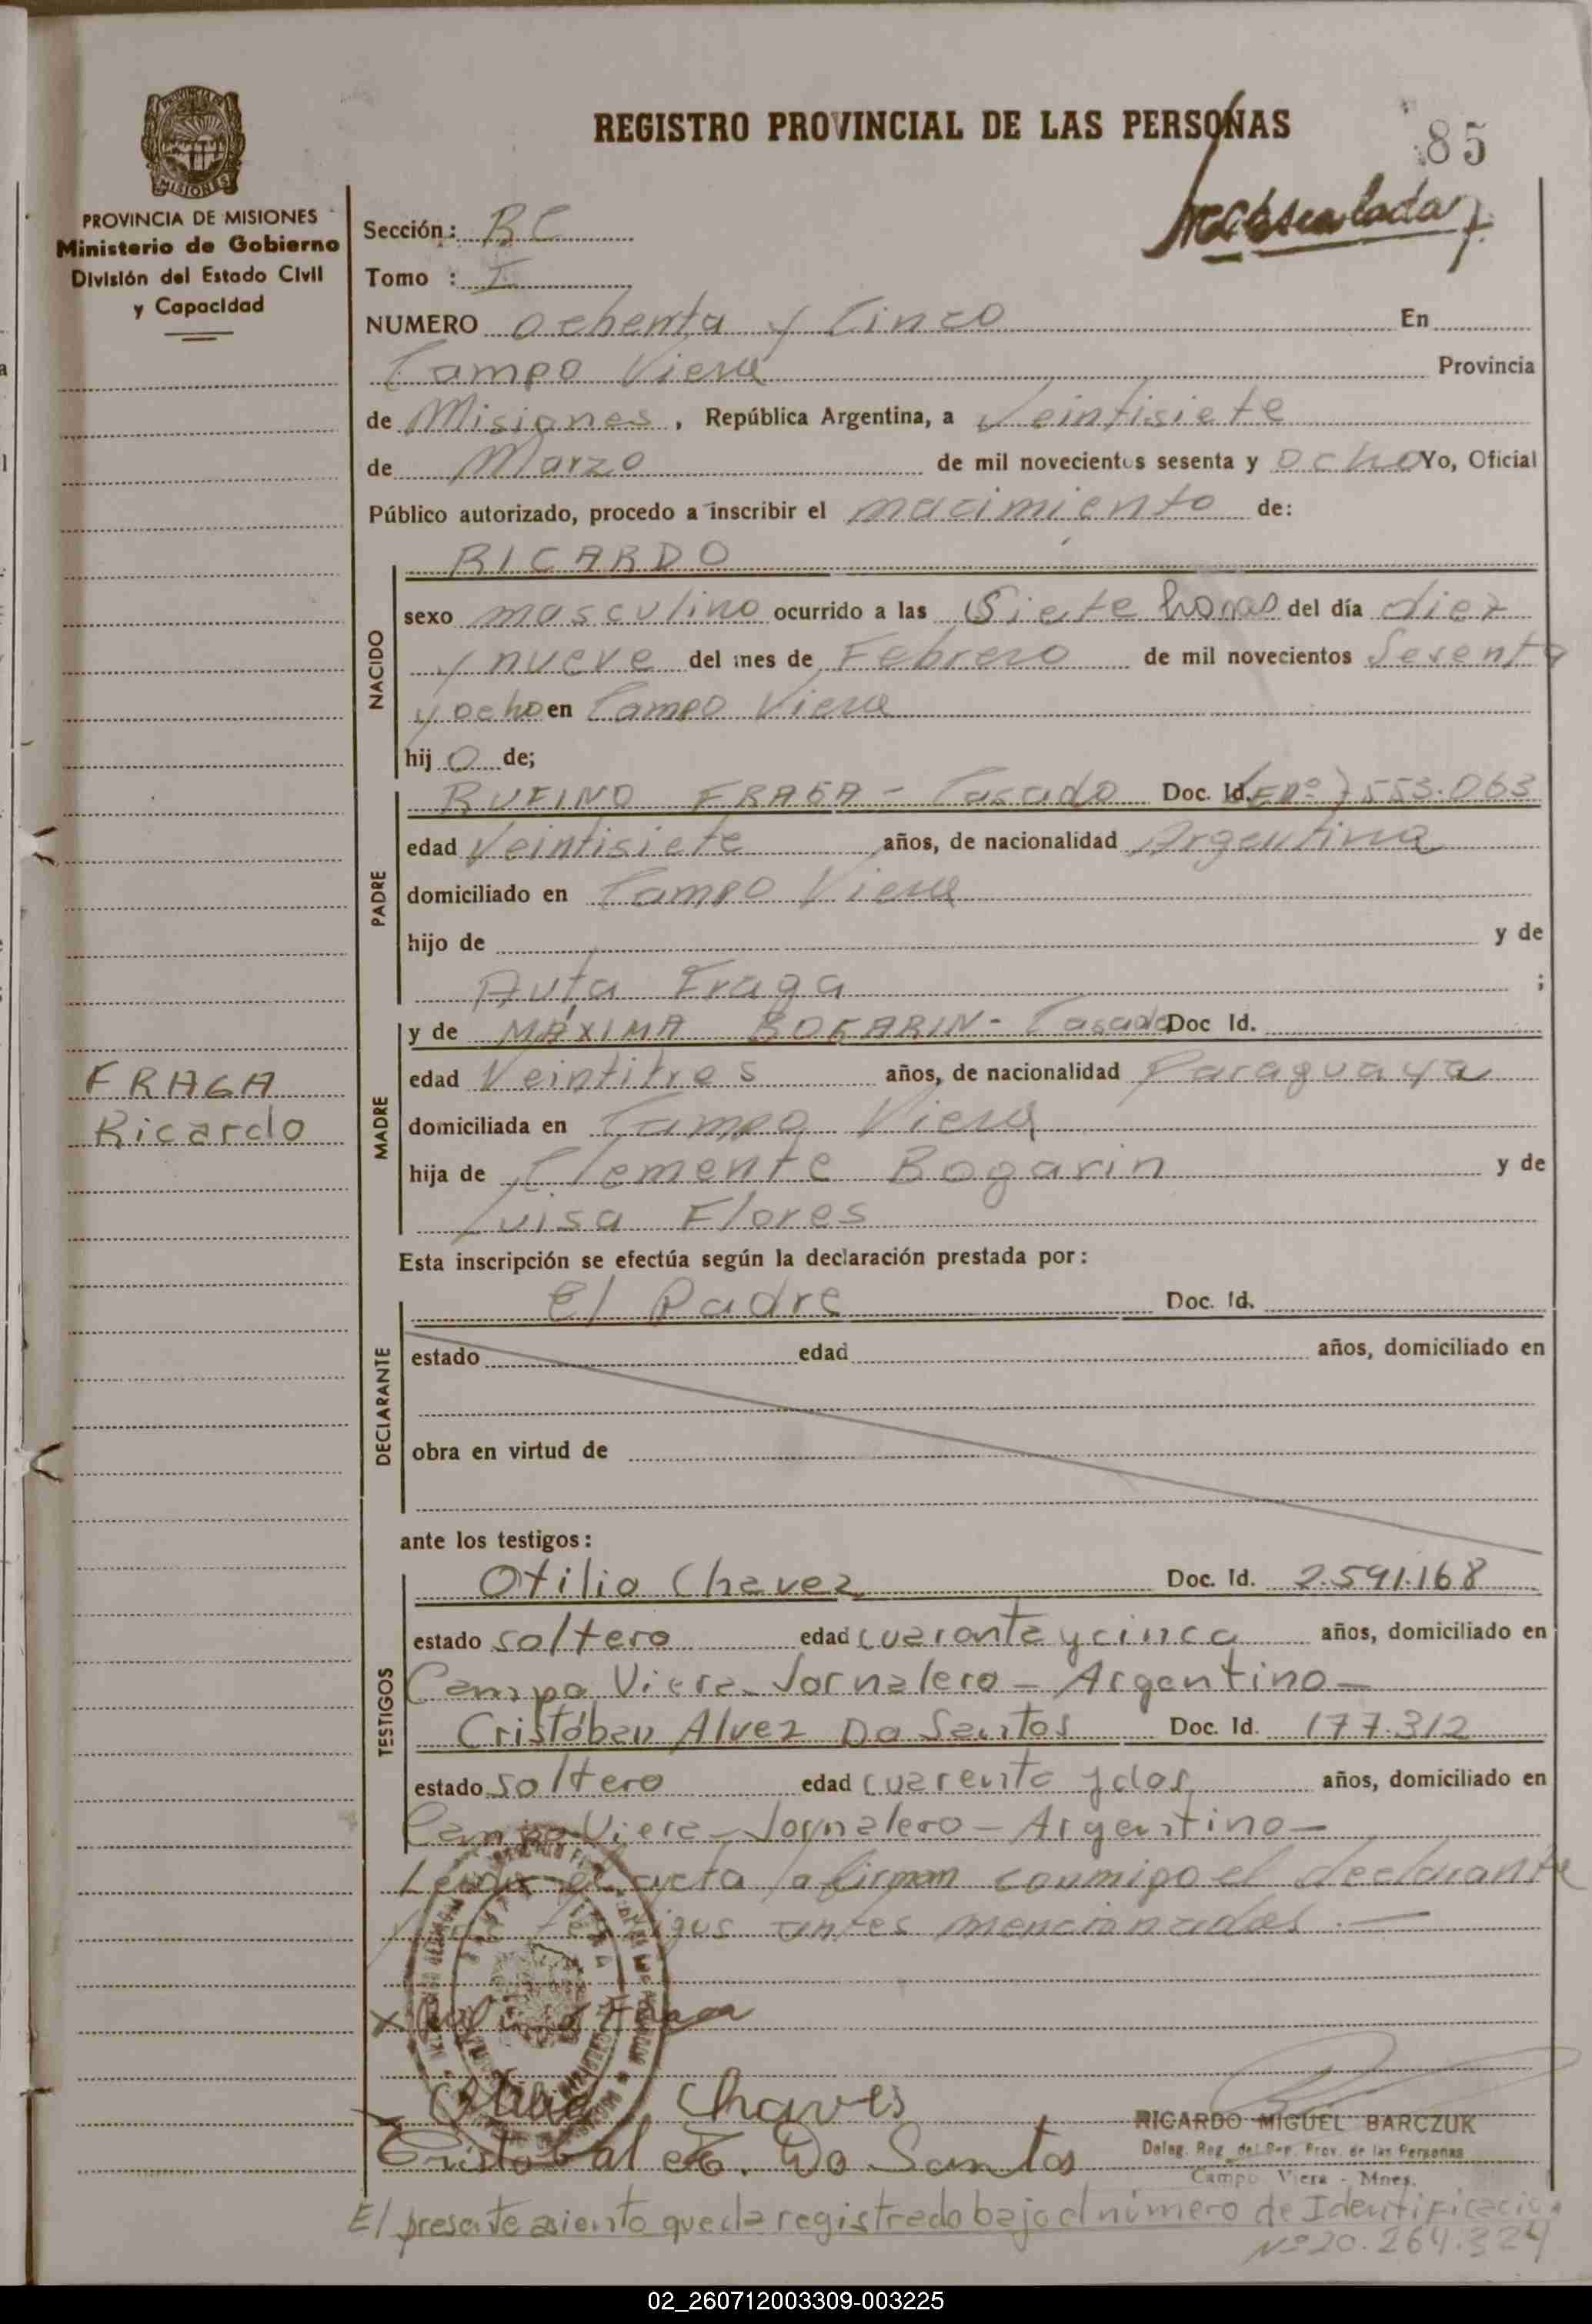 REGISTRO PROVINCIAL DE LAS PERSONAS
85
PROVINCIA DE MISIONES
Ministerio de Gobierno
División del Estado Civil
y Capacidad
Sección: BC
Tomo : I
NUMERO ochenta y Cinco En
Campo Viera Provincia
de Misiones, República Argentina, a Veintisiete
de Marzo de mil novecientos sesenta y ocho Yo, Oficial
Público autorizado, procedo a inscribir el nacimiento de:
NACIDO
RICARDO
sexo masculino ocurrido a las Siete horas del día diez
y nueve del mes de Febrero de mil novecientos Sesenta
y ocho en Campo Viera
hij o de;
PADRE
RUFINO FRAGA - Casado Doc. Id. LE nº 7553.063
edad Veintisiete años, de nacionalidad Argentina
domiciliado en Campo Viera
hijo de y de
Auta Fraga ;
MADRE
y de MÁXIMA BOGARIN - Casada Doc Id.
edad Veintitres años, de nacionalidad Paraguaya
domiciliada en Campo Viera
hija de Clemente Bogarin y de
Luisa Flores
FRAGA
Ricardo
Esta inscripción se efectúa según la declaración prestada por:
DECLARANTE
El Padre Doc. Id.
estado edad años, domiciliado en
obra en virtud de
ante los testigos:
TESTIGOS
Otilio Chavez Doc. Id. 2.591.168
estado soltero edad cuarenta y cinco años, domiciliado en
Campo Viera - Jornalero - Argentino -
Cristóbal Alvez Do Santos Doc. Id. 177.312
estado soltero edad cuarenta y dos años, domiciliado en
Campo Viera - Jornalero - Argentino -
Leida el acta la firman conmigo el declarante
antes mencionados. -
x Fraga
Otilio Chaves
Cristobal A. Do Santos
RICARDO MIGUEL BARCZUK
Deleg. Reg. del Dep. Prov. de las Personas
Campo Viera - Mnes.
El presente asiento queda registrado bajo el número de Identificacion
Nº 20.264.324
02_260712003309-003225